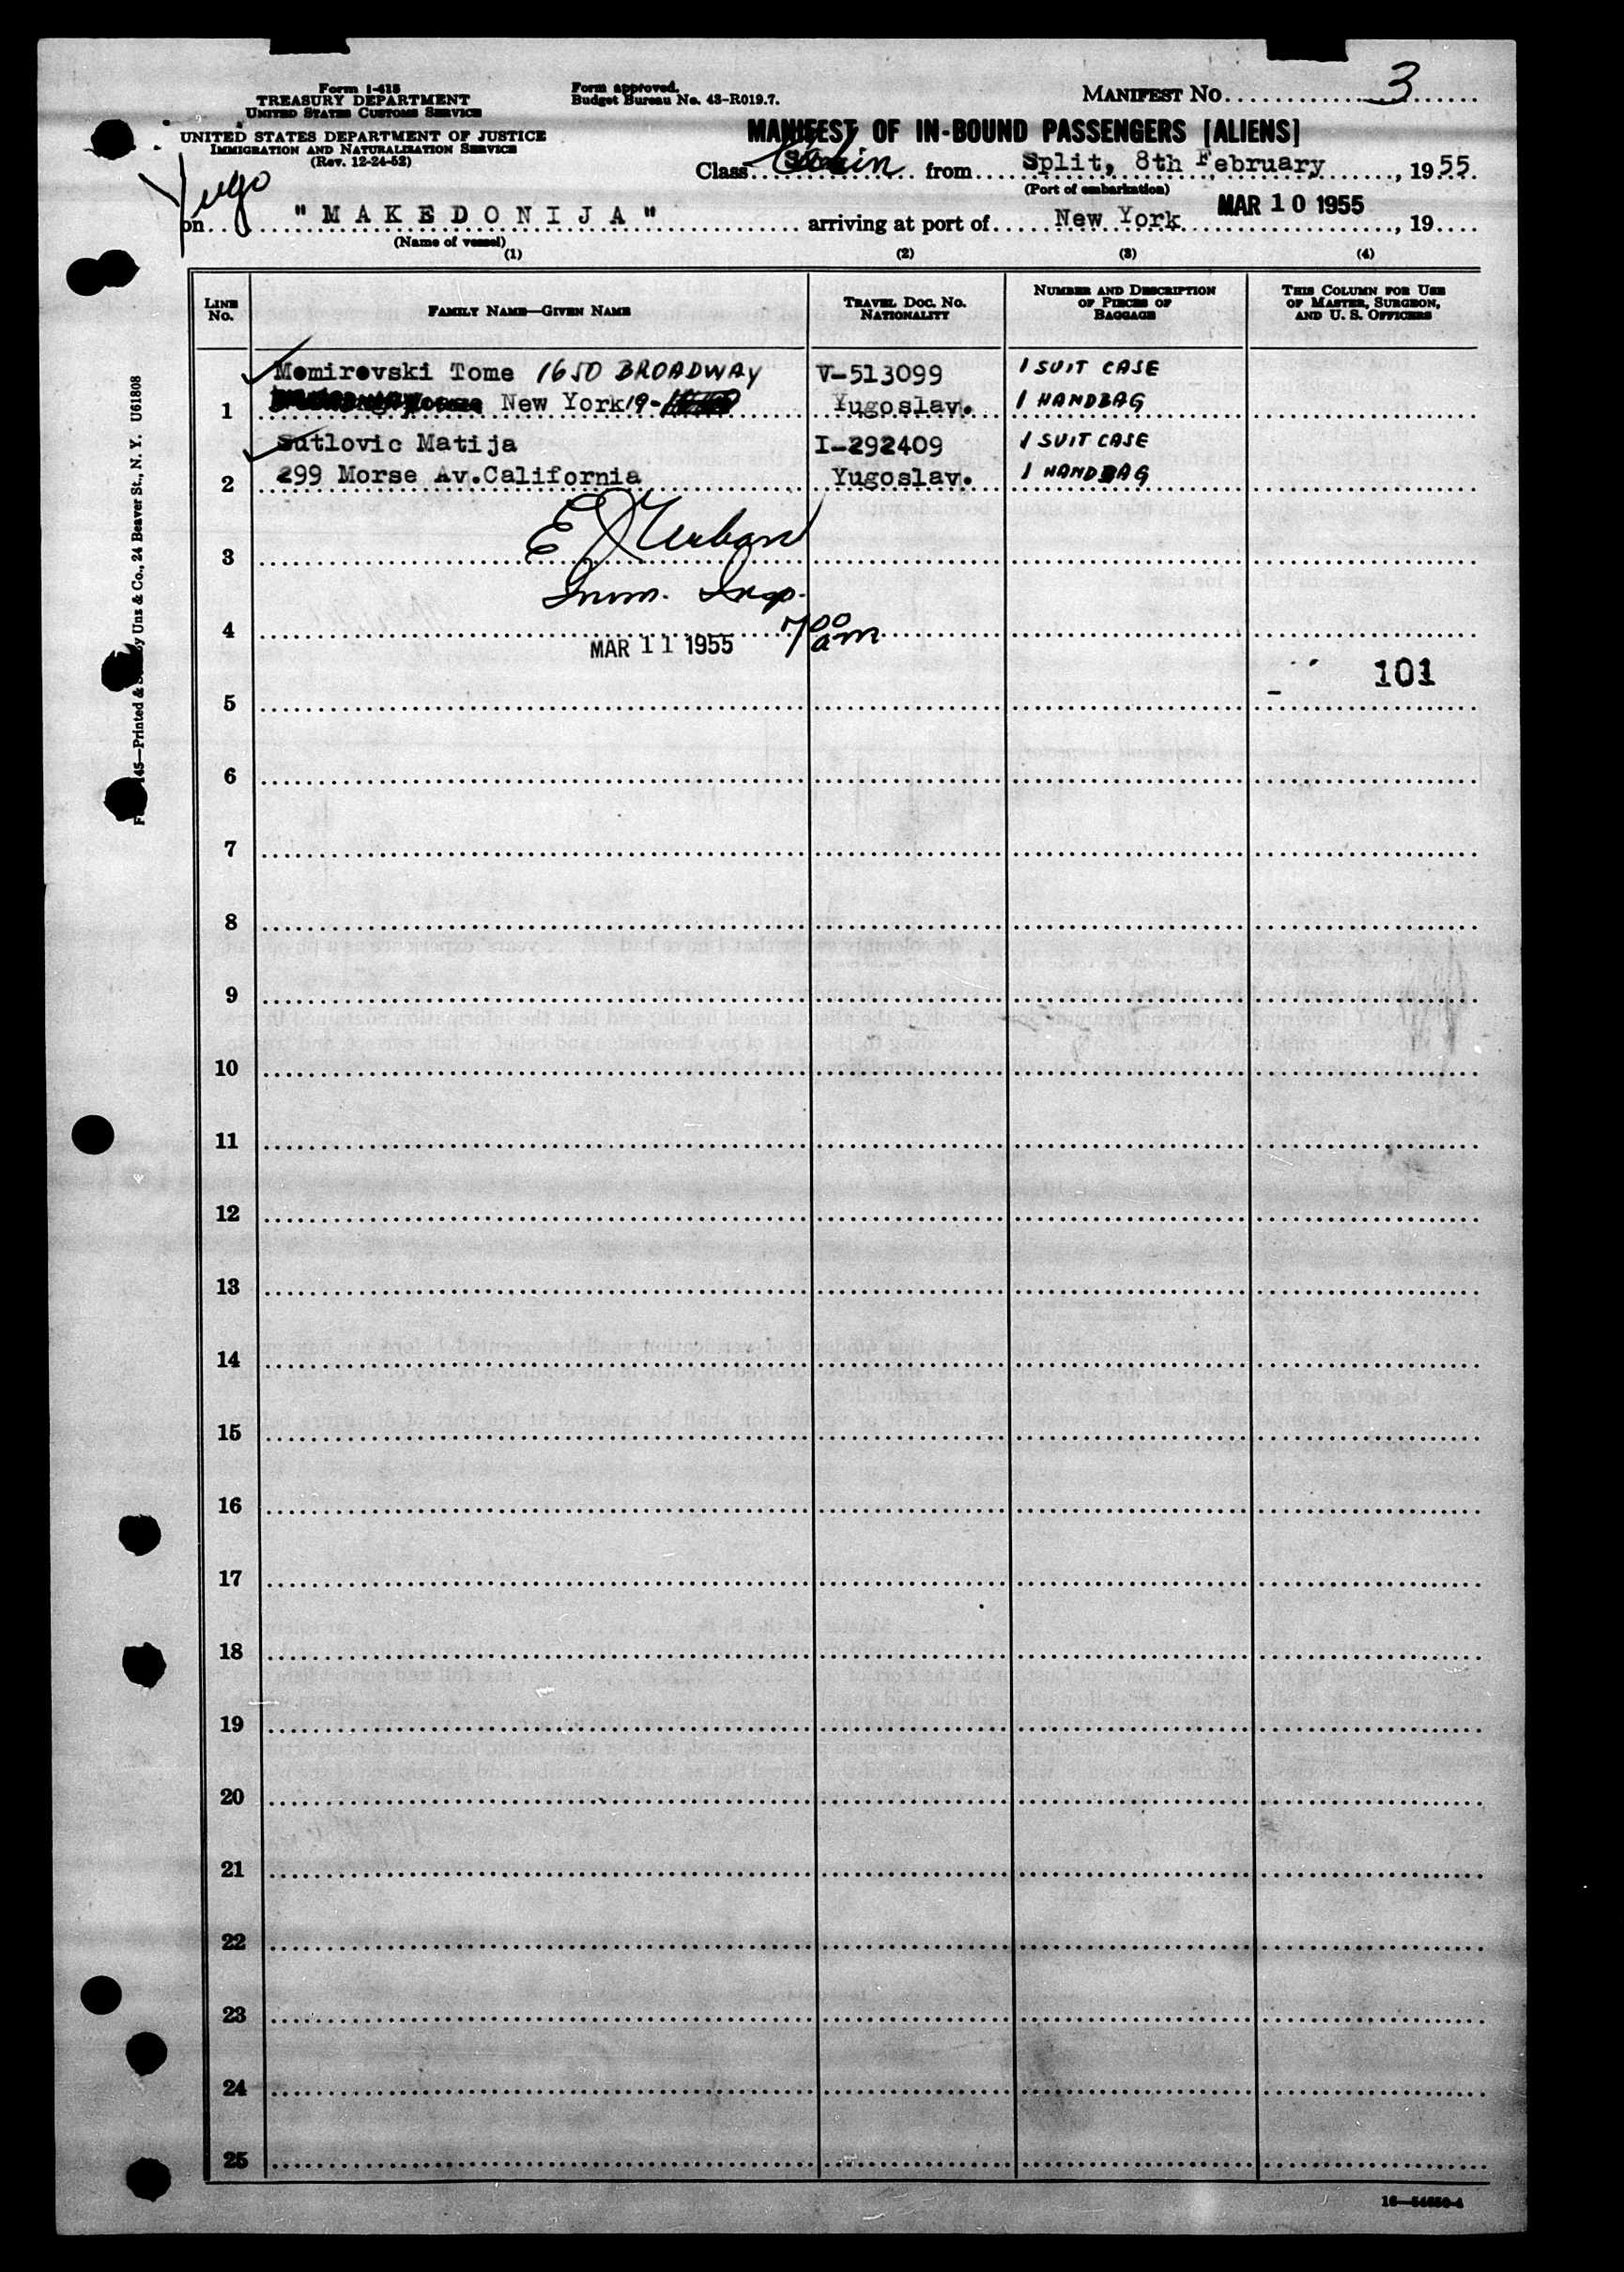 Form I-418
TREASURY DEPARTMENT
UNITED STATES CUSTOMS SERVICE
UNITED STATES DEPARTMENT OF JUSTICE
IMMIGRATION AND NATURALIZATION SERVICE
(Rev. 12-24-52)
Form approved.
Budget Bureau No. 43-R019.7.
MANIFEST NO. 3
MANIFEST OF IN-BOUND PASSENGERS [ALIENS]
Class Cabin from Split, 8th February, 1955.
(Port of embarkation)
Yugo
on "MAKEDONIJA" arriving at port of New York MAR 10 1955, 19
(Name of vessel)
(1) (2) (3) (4)
LINE NO. FAMILY NAME—GIVEN NAME TRAVEL DOC. NO. NATIONALITY NUMBER AND DESCRIPTION OF PIECES OF BAGGAGE THIS COLUMN FOR USE OF MASTER, SURGEON, AND U. S. OFFICERS
Momirovski Tome 1650 BROADWAY V-513099 1 SUIT CASE
1 New York 19- Yugoslav. 1 HANDBAG
Sutlovic Matija I-292409 1 SUIT CASE
2 299 Morse Av.California Yugoslav. 1 HANDBAG
3
Imm. Insp.
4 7 00 am
MAR 11 1955
101
5
6
7
8
9
10
11
12
13
14
15
16
17
18
19
20
21
22
23
24
25
145—Printed & by Unz & Co., 24 Beaver St., N. Y. U61808